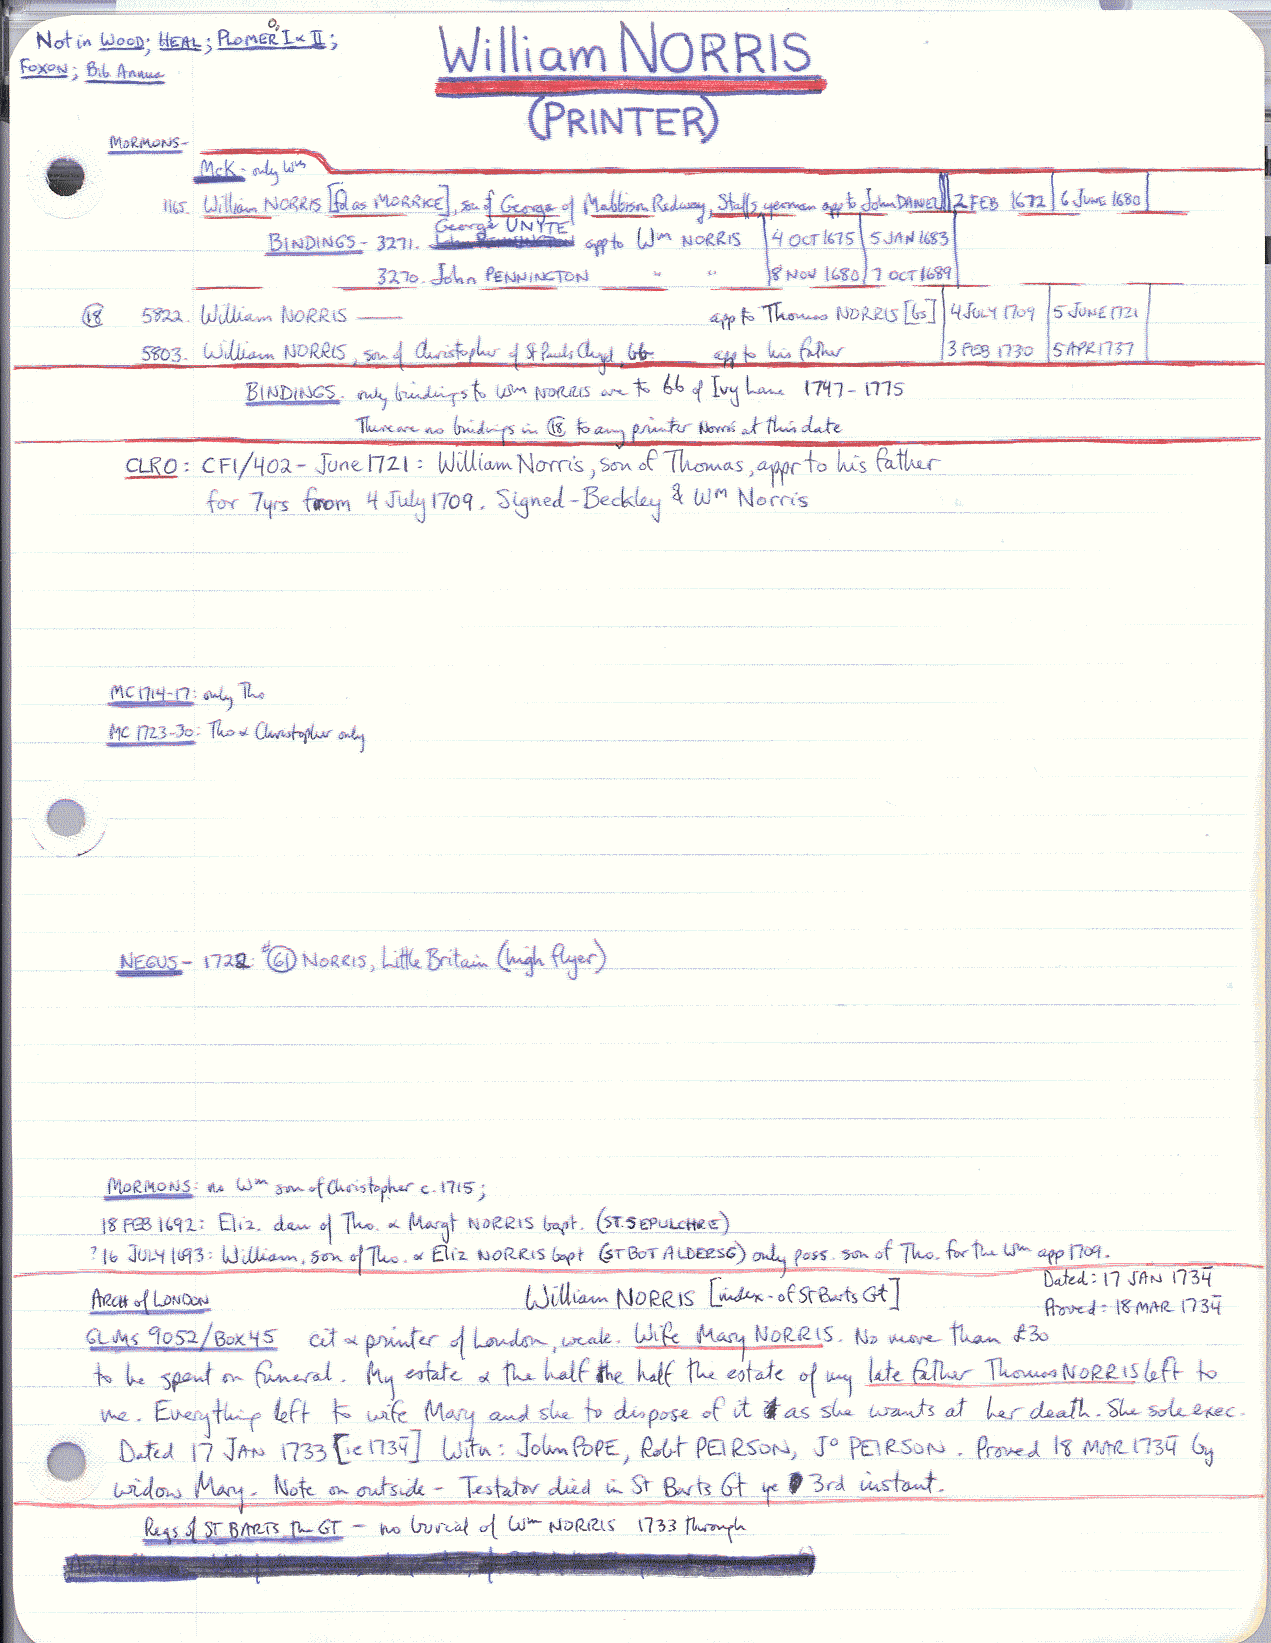 Not in WOOD; HEAL; PLOMER O, I & II;
FOXON; Bib. Annua
William NORRIS
(PRINTER)
MORMONS-
McK - only Wm
1165. William NORRIS [fd as MORRICE], son of George of Mabbison Redway, Staffs, yeoman app to John DANIEL 2 FEB 1672 6 JUNE 1680
George UNYTE
BINDINGS - 3271. app to Wm NORRIS 4 OCT 1675 5 JAN 1683
3270. John PENNINGTON " " 8 NOV 1680 7 OCT 1689
18 5822. William NORRIS — app to Thomas NORRIS [bs] 4 JULY 1709 5 JUNE 1721
5803. William NORRIS, son of Christopher of St Pauls Chyd, bb app to his father 3 FEB 1730 5 APR 1737
BINDINGS. only bindings to Wm NORRIS are to bb of Ivy Lane 1747-1775
There are no bindings in 18 to any printer Norris at this date
CLRO: CF1/402 - June 1721: William Norris, son of Thomas, appr to his father
for 7yrs from 4 July 1709. Signed - Beckley & Wm Norris
MC 1714-17: only Tho
MC 1723-30: Tho & Christopher only
NEGUS - 1722: #61 NORRIS, Little Britain (high flyer)
MORMONS: no Wm son of Christopher c.1715;
18 FEB 1692: Eliz. dau of Tho. & Margt NORRIS bapt. (ST. SEPULCHRE)
?16 JULY 1693: William, son of Tho. & Eliz NORRIS bapt (ST BOT ALDERSG) only poss. son of Tho. for the Wm app 1709.
Dated: 17 JAN 1734
ARCH of LONDON William NORRIS [index - of St Barts Gt]
Proved: 18 MAR 1734
GL Ms 9052/Box 45 cit & printer of London, weak. Wife Mary NORRIS. No more than £30
to be spent on funeral. My estate & the half the half the estate of my late father Thomas NORRIS left to
me. Everything left to wife Mary and she to dispose of it as she wants at her death. She sole exec.
Dated 17 JAN 1733 [ie 1734] Witn: John POPE, Robt PEIRSON, Jo PEIRSON. Proved 18 MAR 1734 by
widow Mary. Note on outside - Testator died in St Barts Gt ye 3rd instant.
Regs of ST BARTS the GT - no burial of Wm NORRIS 1733 through